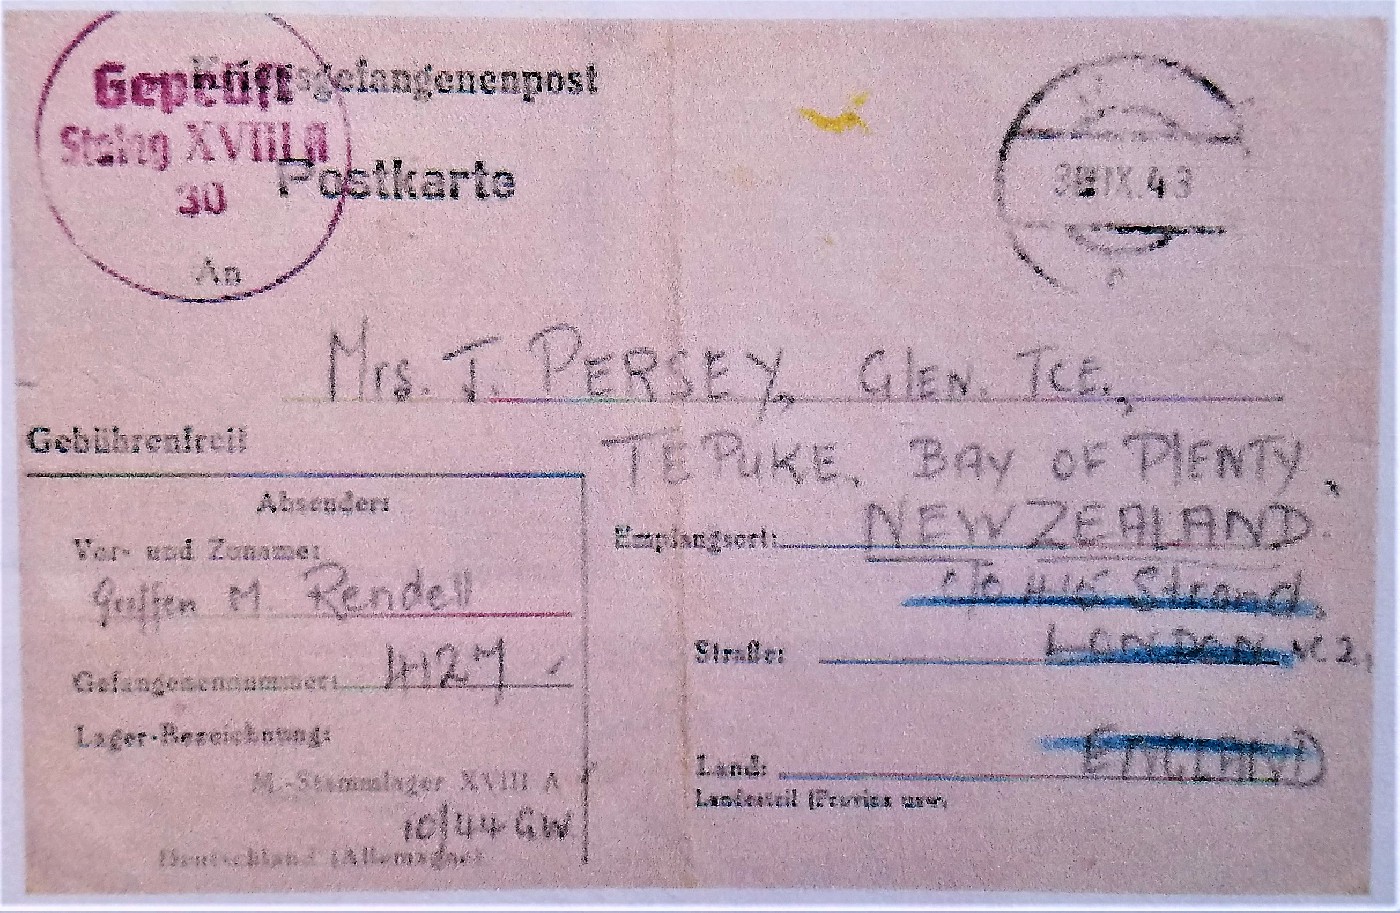 Kriegsgefangenenpost
Geprüft
Stalag XVIII A
30
Postkarte
IX.43
An
Mrs. J. PERSEY, GLEN. TCE.,
TE PUKE, BAY OF PLENTY,
NEW ZEALAND
Gebührenfrei!
Absender:
Vor- und Zuname:
M. Rendell
Gefangenennummer: 4127
Lager-Bezeichnung:
M.-Stammlager XVIII A
10/44 GW
Deutschland (Allemagne)
Empfangsort:
c/o 415 Strand,
Straße: LONDON WC2,
Land: ENGLAND
Landesteil (Provinz usw.